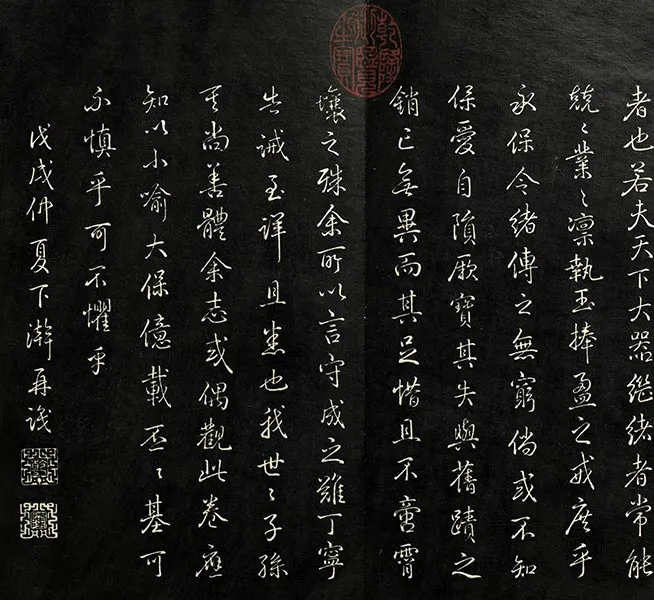 乾隆御覽之寶
者也若夫天下大器繼緒者常能
兢〻業〻凛執玉捧盈之戒庶乎
永保令緒傳之無窮倘或不知
保愛自隕厥寶其失與舊蹟之
銷亡無異而其足惜且不啻霄
壤之殊余所以言守成之難丁寧
告誡至詳且悉也我世〻子孫
其尚善體余志或偶觀此卷應
知以小喻大保億載丕〻基可
不慎乎可不懼乎
戊戌仲夏下澣再識